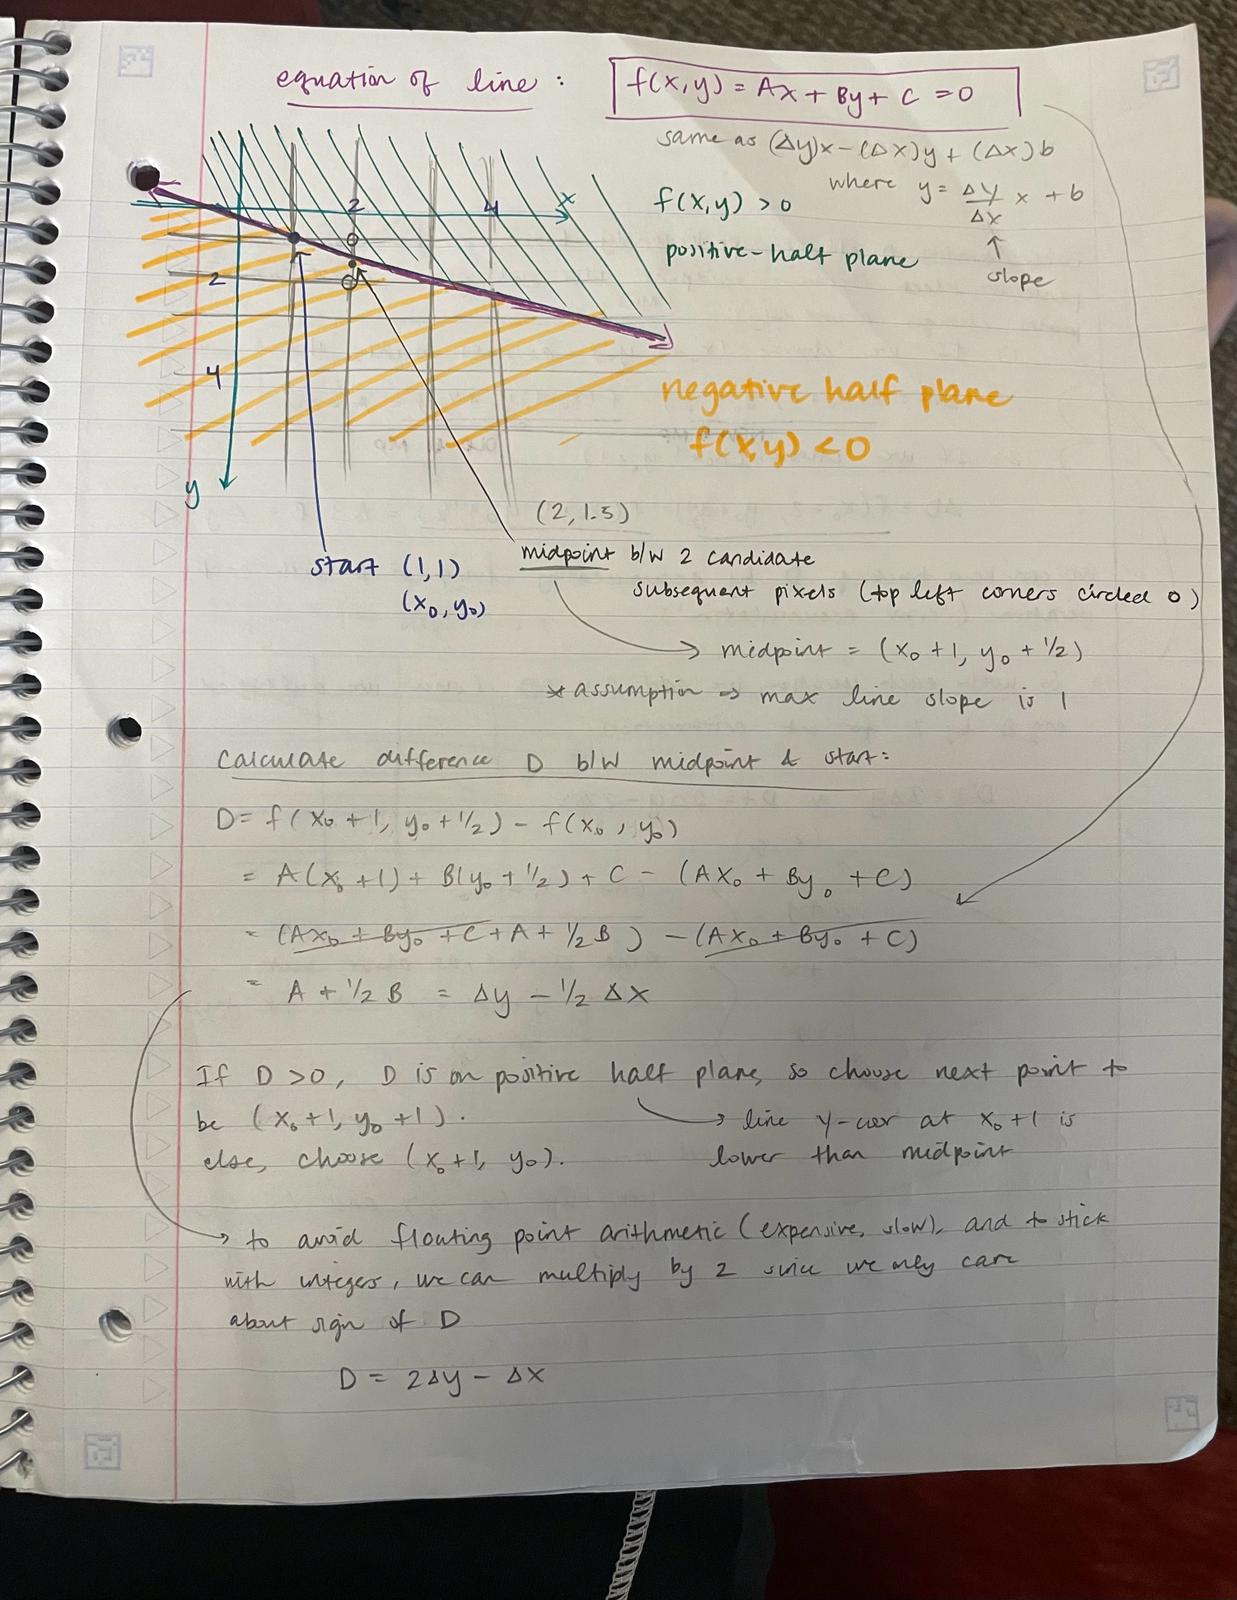 equation of line : f(x,y) = Ax + By + C = 0
same as (Δy)x - (Δx)y + (Δx)b
where y = Δy/Δx x + b
↑
slope
f(x,y) > 0
positive-half plane
x
2
4
2
4
y
negative half plane
f(x,y) < 0
(2, 1.5)
midpoint b/w 2 candidate
subsequent pixels (top left corners circled o)
start (1,1)
(x₀, y₀)
→ midpoint = (x₀ + 1, y₀ + 1/2)
* assumption ⇒ max line slope is 1
Calculate difference D b/w midpoint & start:
D = f(x₀ + 1, y₀ + 1/2) - f(x₀, y₀)
= A(x₀ + 1) + B(y₀ + 1/2) + C - (Ax₀ + By₀ + C)
= (Ax₀ + By₀ + C + A + 1/2 B) - (Ax₀ + By₀ + C)
= A + 1/2 B = Δy - 1/2 Δx
If D > 0, D is on positive half plane, so choose next point to
be (x₀ + 1, y₀ + 1).
→ line y-coor at x₀ + 1 is
else, choose (x₀ + 1, y₀).
lower than midpoint
→ to avoid floating point arithmetic (expensive, slow), and to stick
with integers, we can multiply by 2 since we only care
about sign of D
D = 2Δy - Δx